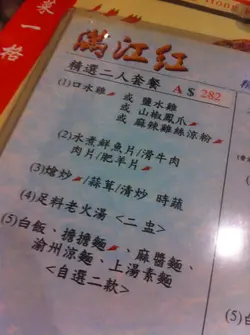 菜一格
滿江紅
精選二人套餐 A $ 282
(1)口水雞 或 鹽水雞
或 山椒鳳爪
或 麻辣雞絲涼粉
(2)水煮鮮魚片/滑牛肉
肉片/肥羊片
(3)熗炒/蒜茸/清炒 時蔬
(4)足料老火湯 <二 盅>
(5)白飯、擔擔麵、麻醬麵、
渝州涼麵、上湯素麵
<自選二款>